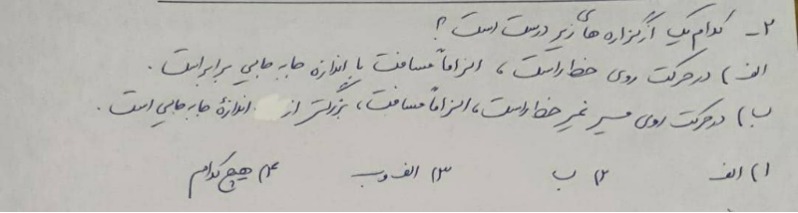 ۲- کدام یک از گزاره های زیر درست است؟
الف) در حرکت روی خط راست، الزاماً مسافت با اندازه جابه جایی برابر است.
ب) در حرکت روی مسیر غیر خط راست، الزاماً مسافت، بزرگتر از اندازهٔ جابه جایی است.
۱) الف ۲) ب ۳) الف و ب ۴) هیچ کدام